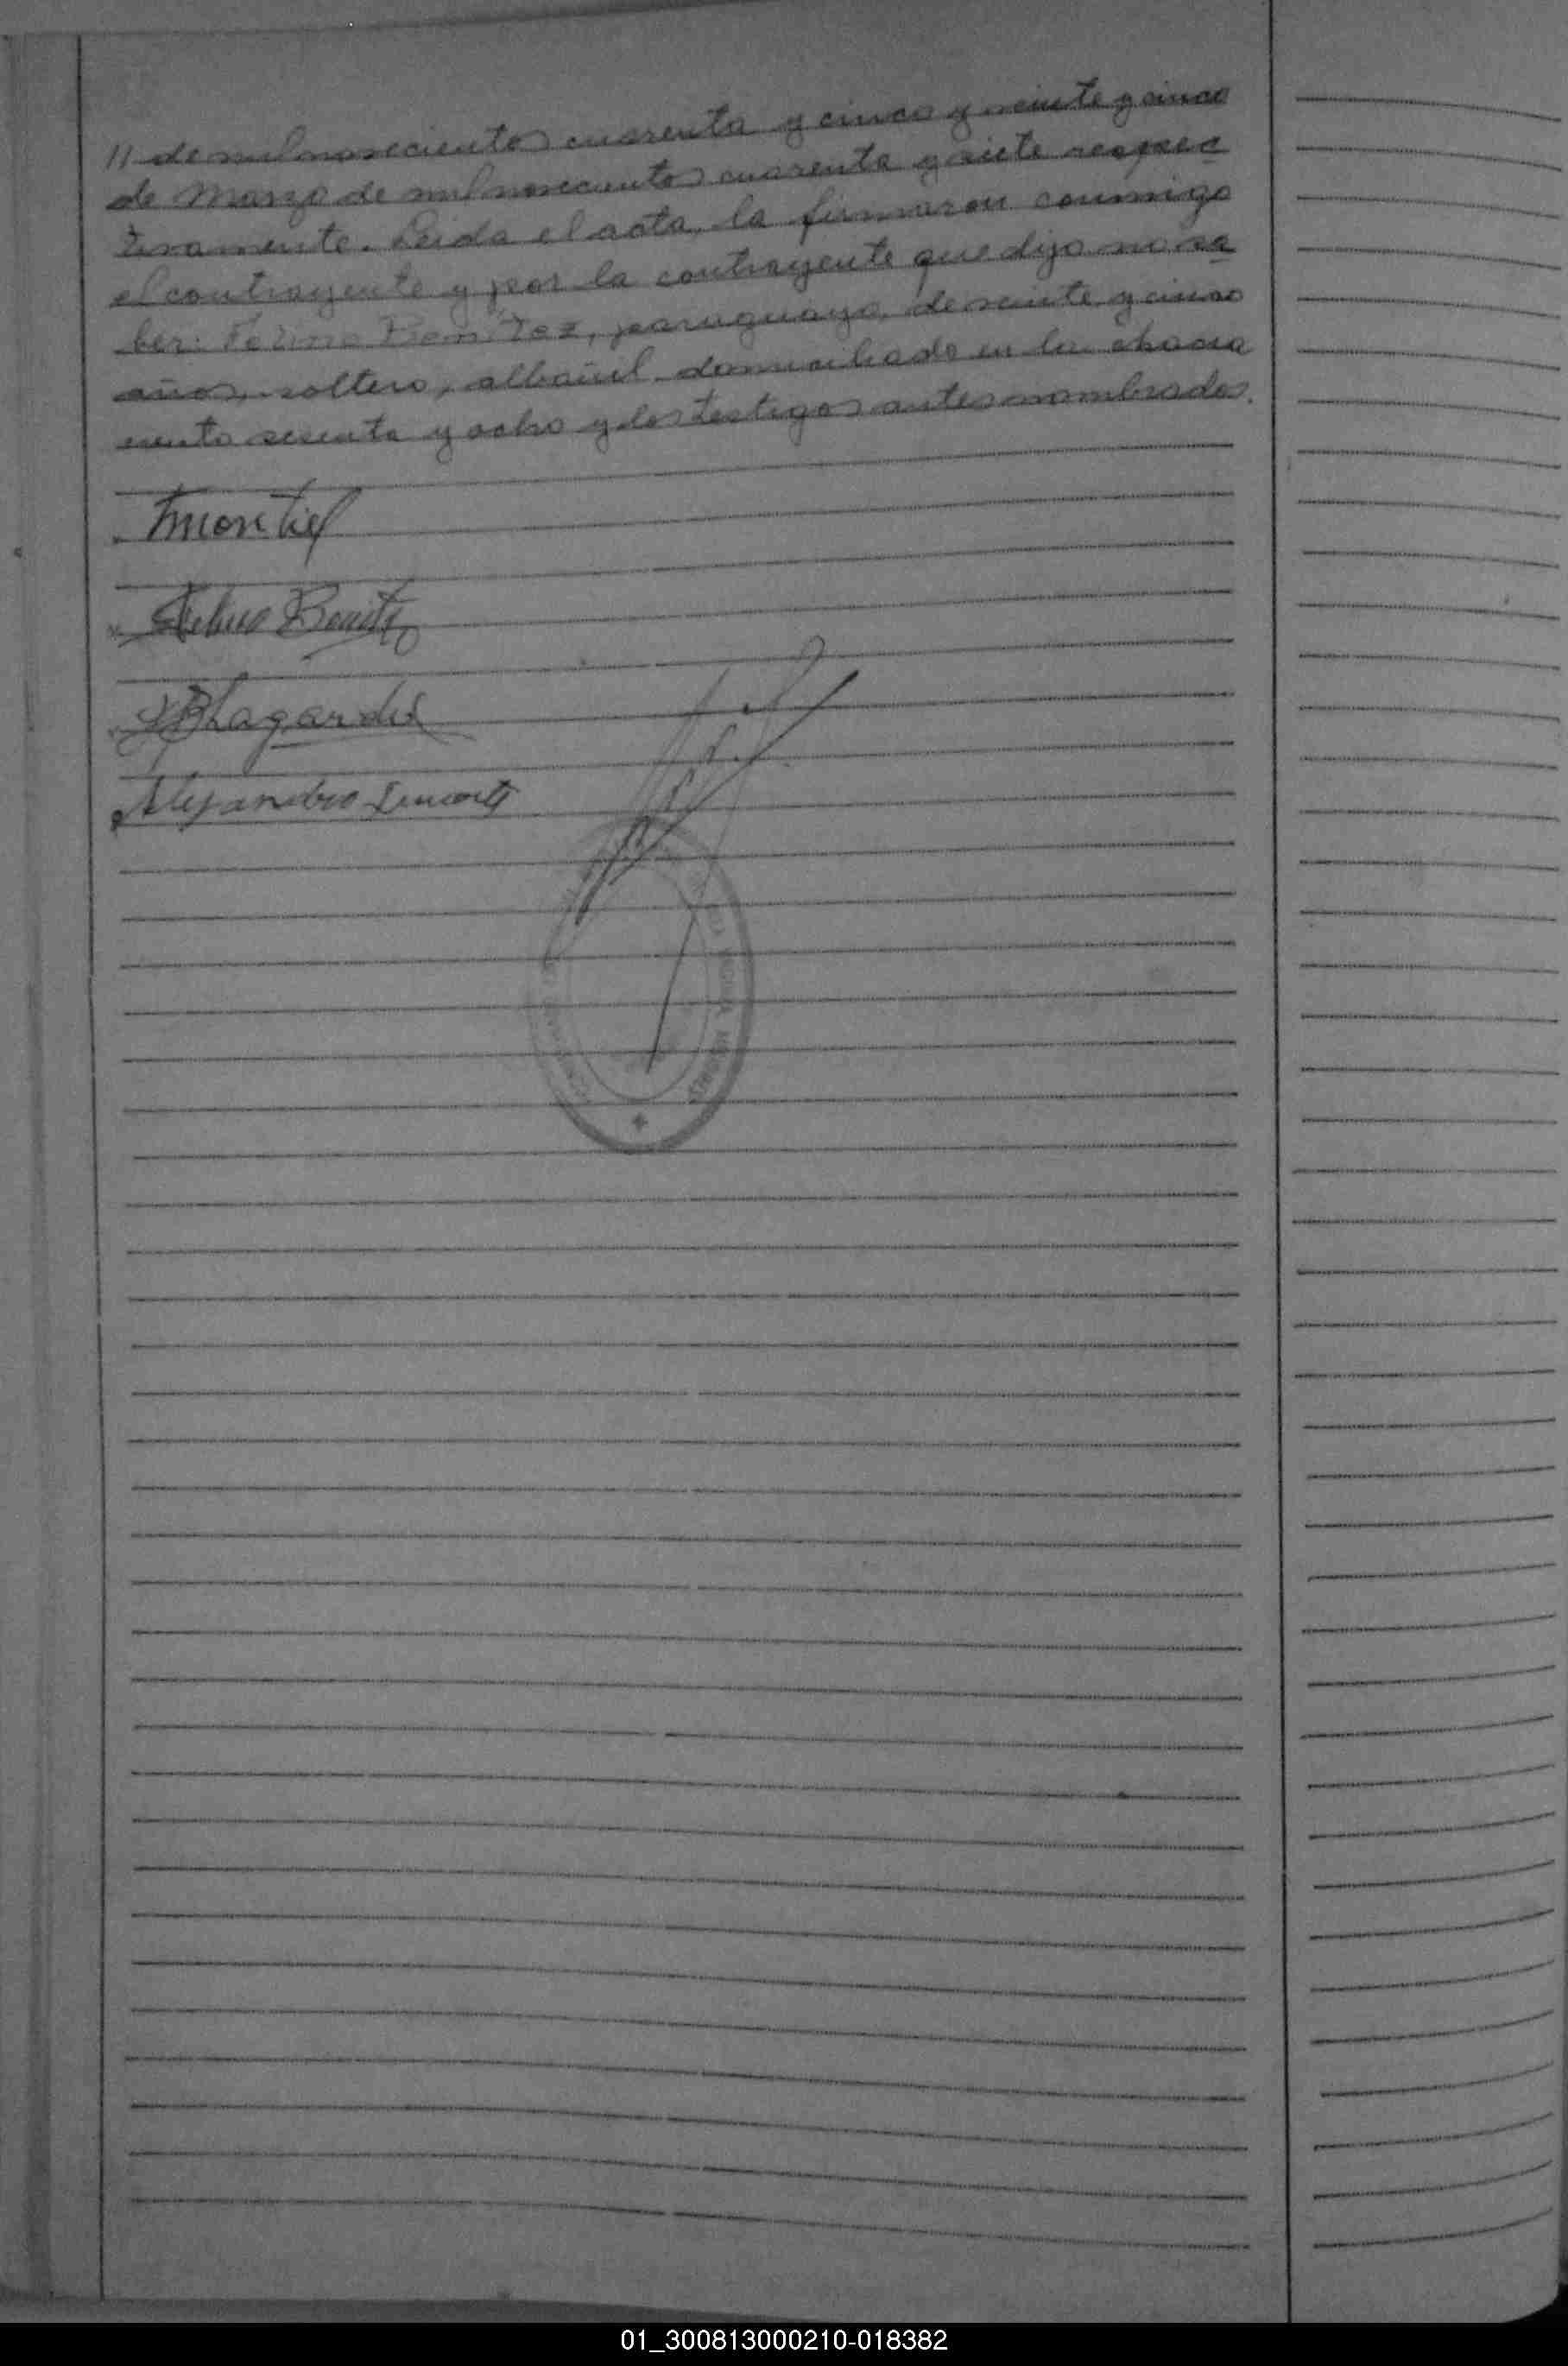 11 de mil novecientos cuarenta y cinco y veinte y cinco
de Marzo de mil novecientos cuarenta y siete respec
tivamente. Leida el acta, la firmaron conmigo
el contrayente y por la contrayente que dijo no sa
ber: Felino Benitez, paraguayo, de veinte y cinco
años, soltero, albañil, domiciliado en la chacra
ciento sesenta y ocho y los testigos antes nombrados.
Montiel
Benitez
Lagardis
Alejandro
01_300813000210-018382